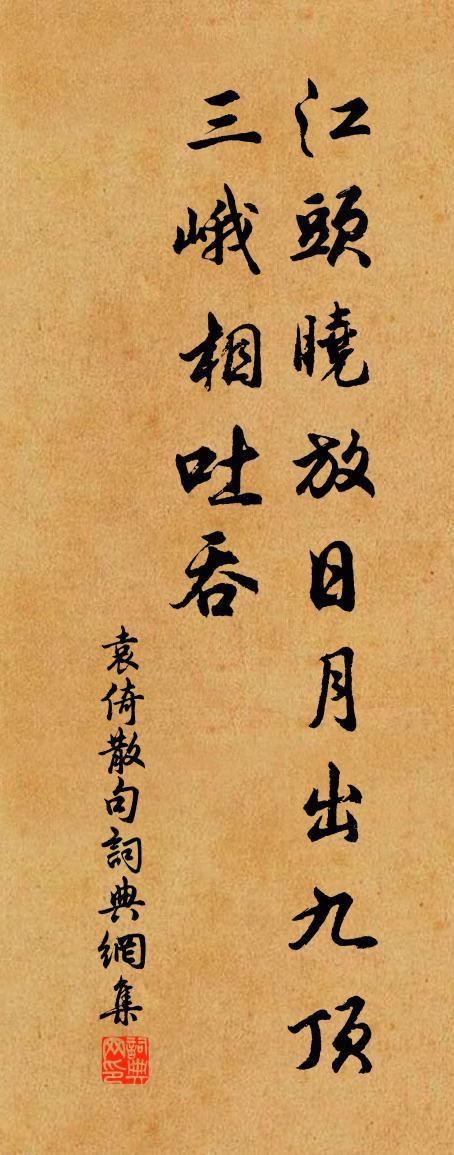 江頭曉放日月出九頂
三峨相吐吞
袁倚散句詞典網集
詞典網印